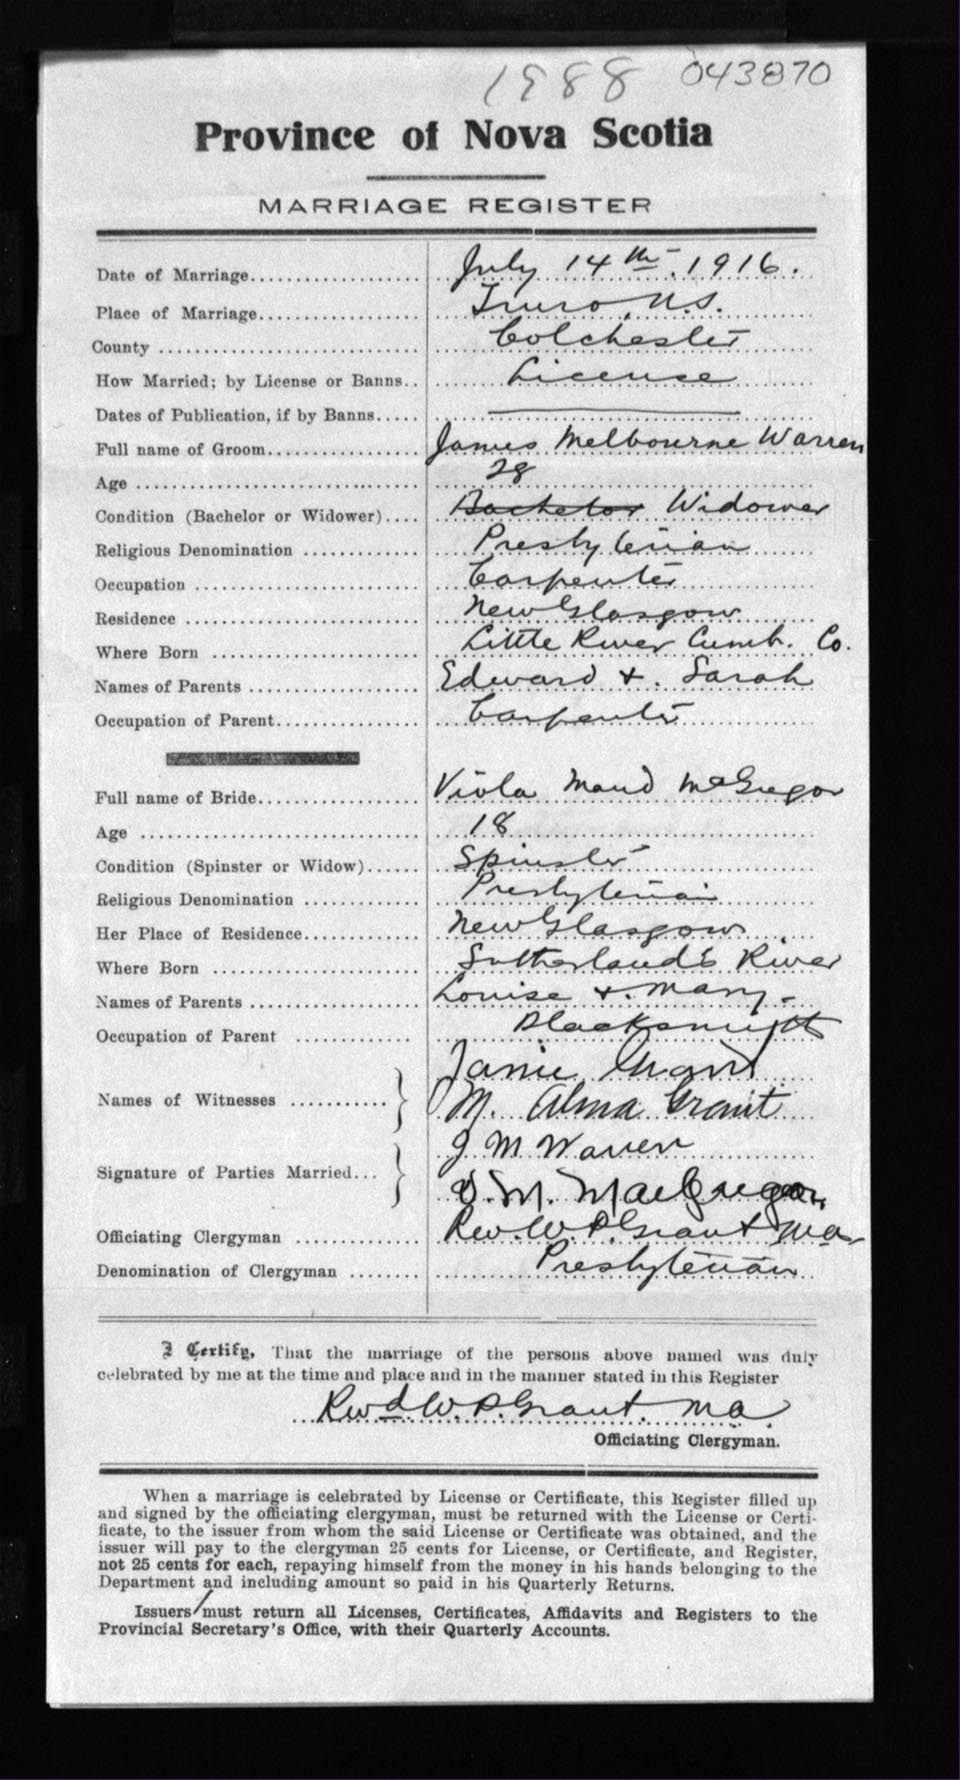 1988 043870
Province of Nova Scotia
MARRIAGE REGISTER
Date of Marriage................... July 14th. 1916.
Place of Marriage.................. Truro, N.S.
County ............................. Colchester
How Married; by License or Banns.. License
Dates of Publication, if by Banns.....
Full name of Groom................. James Melbourne Warren
Age ............................... 28
Condition (Bachelor or Widower).... Bachelor Widower
Religious Denomination ............. Presbyterian
Occupation ......................... Carpenter
Residence .......................... New Glasgow
Where Born ........................ Little River Cumb. Co.
Names of Parents ................... Edward &. Sarah
Occupation of Parent................ Carpenter
Full name of Bride.................. Viola Maud McGregor
Age ............................... 18
Condition (Spinster or Widow)...... Spinster
Religious Denomination ............. Presbyterian
Her Place of Residence............. New Glasgow
Where Born ........................ Sutherland's River
Names of Parents ................... Louise &. Mary -
Occupation of Parent ............. Blacksmith
Janie Grant
Names of Witnesses ........... } M. Alma Grant
J M Warren
Signature of Parties Married... } V. M. MacGregor,
Officiating Clergyman .............. Rev. W. P. Grant M a
Denomination of Clergyman ........ Presbyterian
I Certify, That the marriage of the persons above named was duly
celebrated by me at the time and place and in the manner stated in this Register
Revd W. P. Grant. M a.
Officiating Clergyman.
When a marriage is celebrated by License or Certificate, this Register filled up
and signed by the officiating clergyman, must be returned with the License or Certi-
ficate, to the issuer from whom the said License or Certificate was obtained, and the
issuer will pay to the clergyman 25 cents for License, or Certificate, and Register,
not 25 cents for each, repaying himself from the money in his hands belonging to the
Department and including amount so paid in his Quarterly Returns.
Issuers must return all Licenses, Certificates, Affidavits and Registers to the
Provincial Secretary's Office, with their Quarterly Accounts.